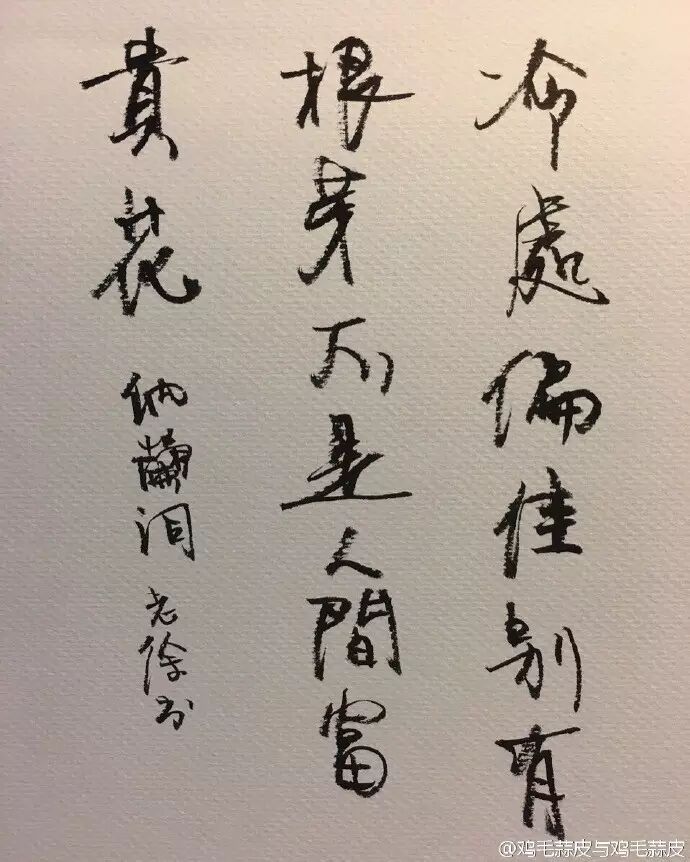 冷處偏佳別有
根芽不是人間富
貴花
納蘭詞
老徐书
@鸡毛蒜皮与鸡毛蒜皮